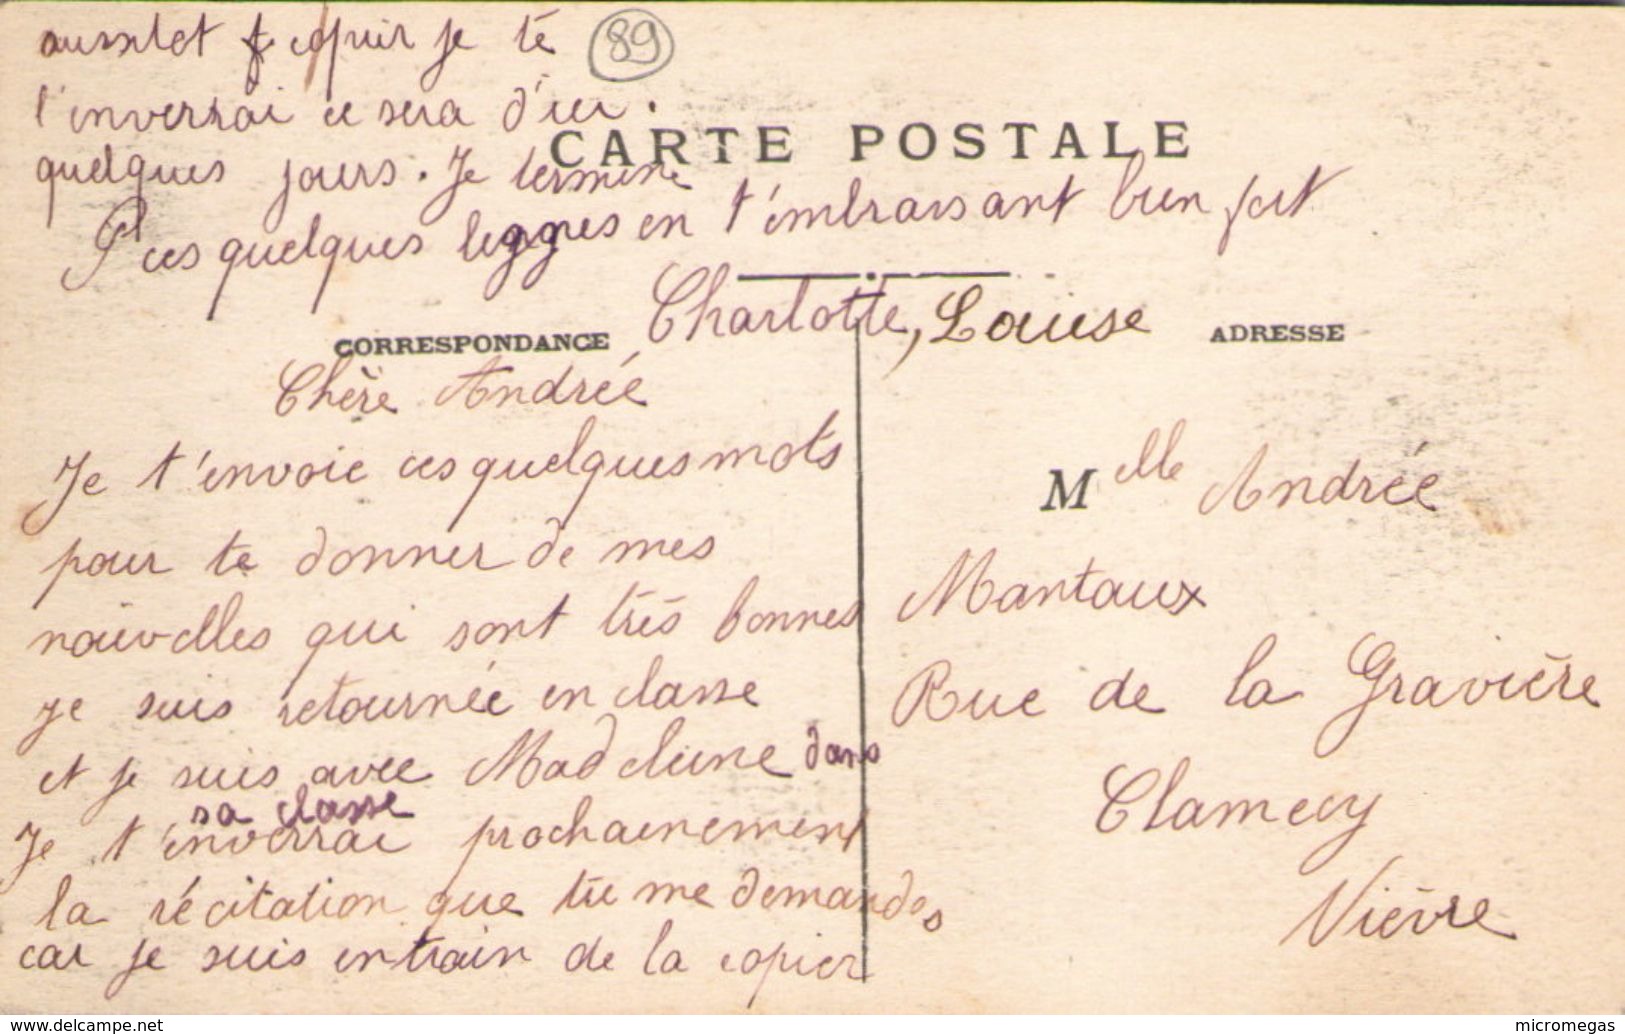 CARTE POSTALE
CORRESPONDANCE
ADRESSE
Chère Andrée
Je t'envoie ces quelques mots
pour te donner de mes
nouvelles qui sont très bonnes
je suis retournée en classe
et je suis avec Madeleine dans
sa classe
Je t'enverrai prochainement
la récitation que tu me demandes
car je suis entrain de la copier
aussitot copier je te
l'enverrai ce sera d'ici
quelques jours. Je termine
ces quelques lignes en t'embrassant bien fort
Charlotte, Louise
89
Melle Andrée
Mantaux
Rue de la Gravière
Clamecy
Nièvre
www.delcampe.net
micromegas